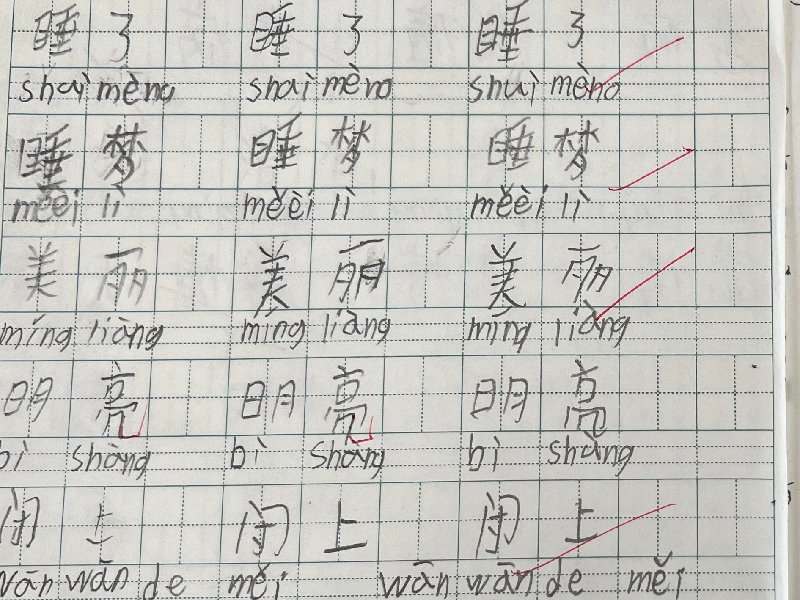 睡了 睡了 睡了
shuì mèng shuì mèng shuì mèng
睡梦 睡梦 睡梦
měèi lì měèi lì měèi lì
美丽 美丽 美丽
míng liàng míng liàng míng liàng
明亮 明亮 明亮
bì shàng bì shàng bì shàng
闭上 闭上 闭上
wān wān de měi wān wān de měi